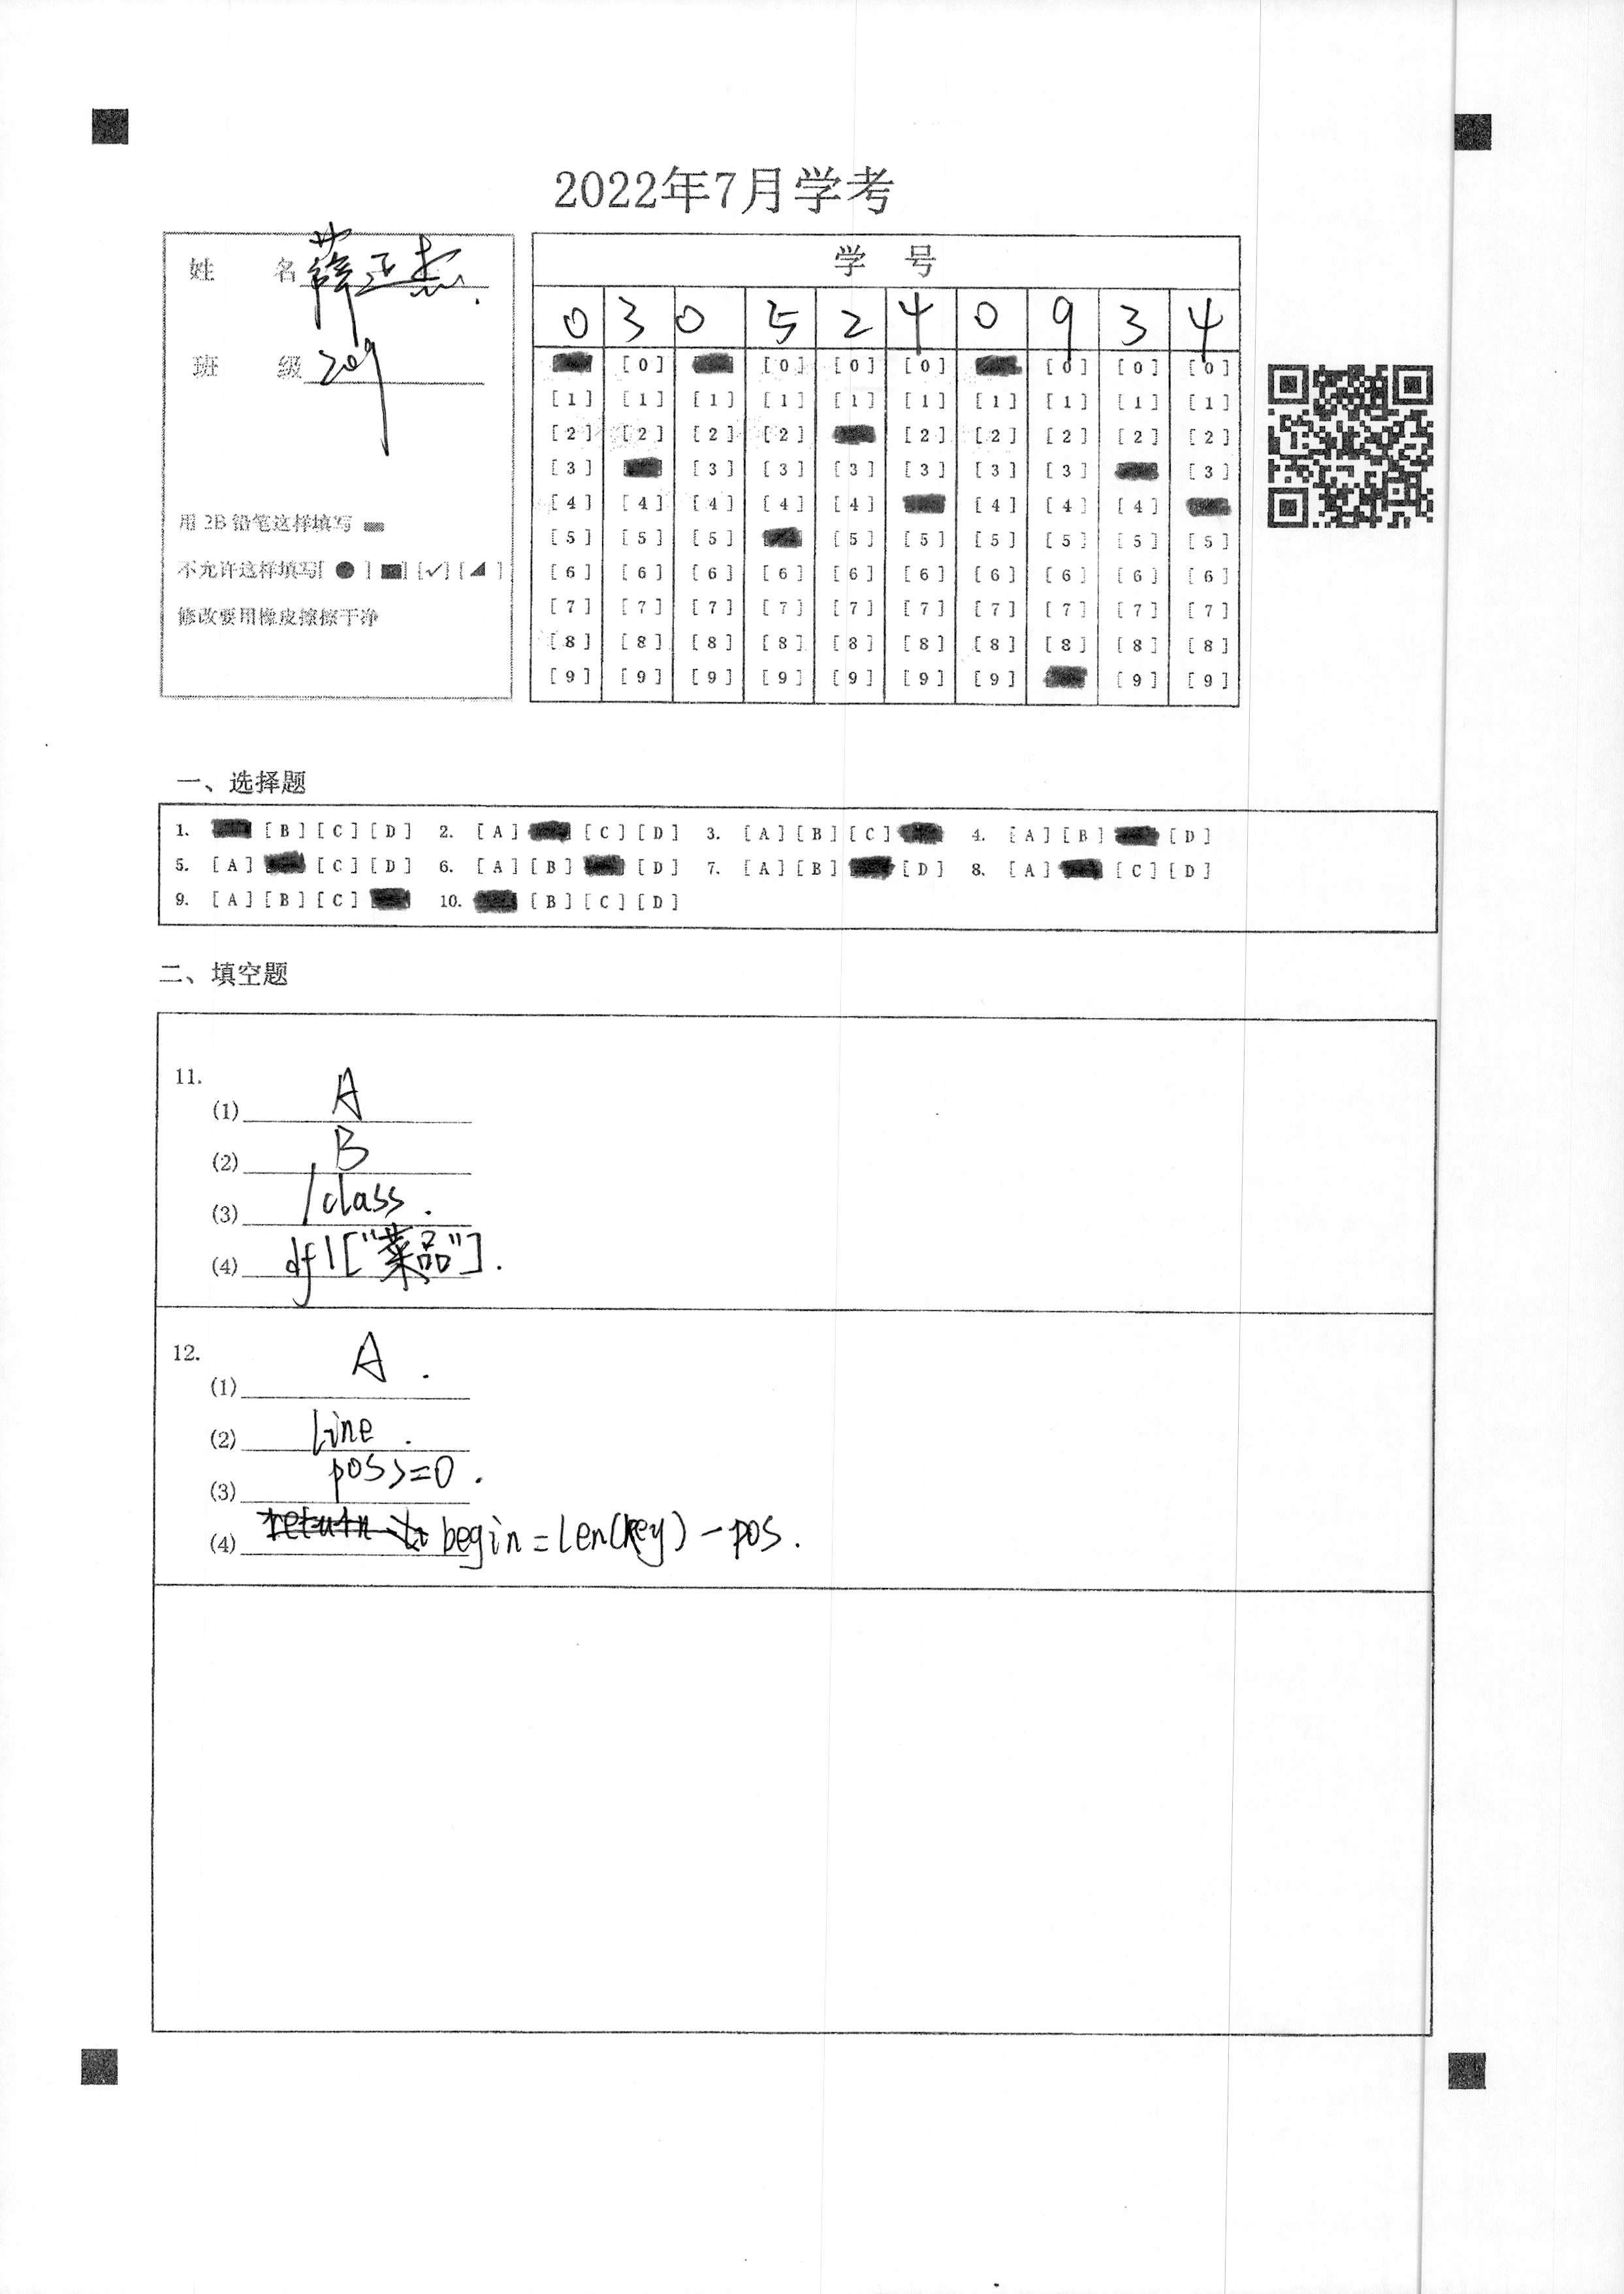 2022年7月学考
姓 名 薛正杰.
班 级 209
用 2B 铅笔这样填写
不允许这样填写[ ● ] [■] [✓] [◢ ]
修改要用橡皮擦擦干净
学 号
0 3 0 5 2 4 0 9 3 4
[0] [0] [0] [0] [0] [0] [0]
[1] [1] [1] [1] [1] [1] [1] [1] [1] [1]
[2] [2] [2] [2] [2] [2] [2] [2] [2]
[3] [3] [3] [3] [3] [3] [3] [3]
[4] [4] [4] [4] [4] [4] [4] [4]
[5] [5] [5] [5] [5] [5] [5] [5] [5]
[6] [6] [6] [6] [6] [6] [6] [6] [6] [6]
[7] [7] [7] [7] [7] [7] [7] [7] [7] [7]
[8] [8] [8] [8] [8] [8] [8] [8] [8] [8]
[9] [9] [9] [9] [9] [9] [9] [9] [9]
一、选择题
1. [B] [C] [D] 2. [A] [C] [D] 3. [A] [B] [C] 4. [A] [B] [D]
5. [A] [C] [D] 6. [A] [B] [D] 7. [A] [B] [D] 8. [A] [C] [D]
9. [A] [B] [C] 10. [B] [C] [D]
二、填空题
11.
(1) A
(2) B
(3) /class.
(4) df1["菜品"].
12.
(1) A.
(2) line.
(3) pos>=0.
(4) begin=len(key)-pos.